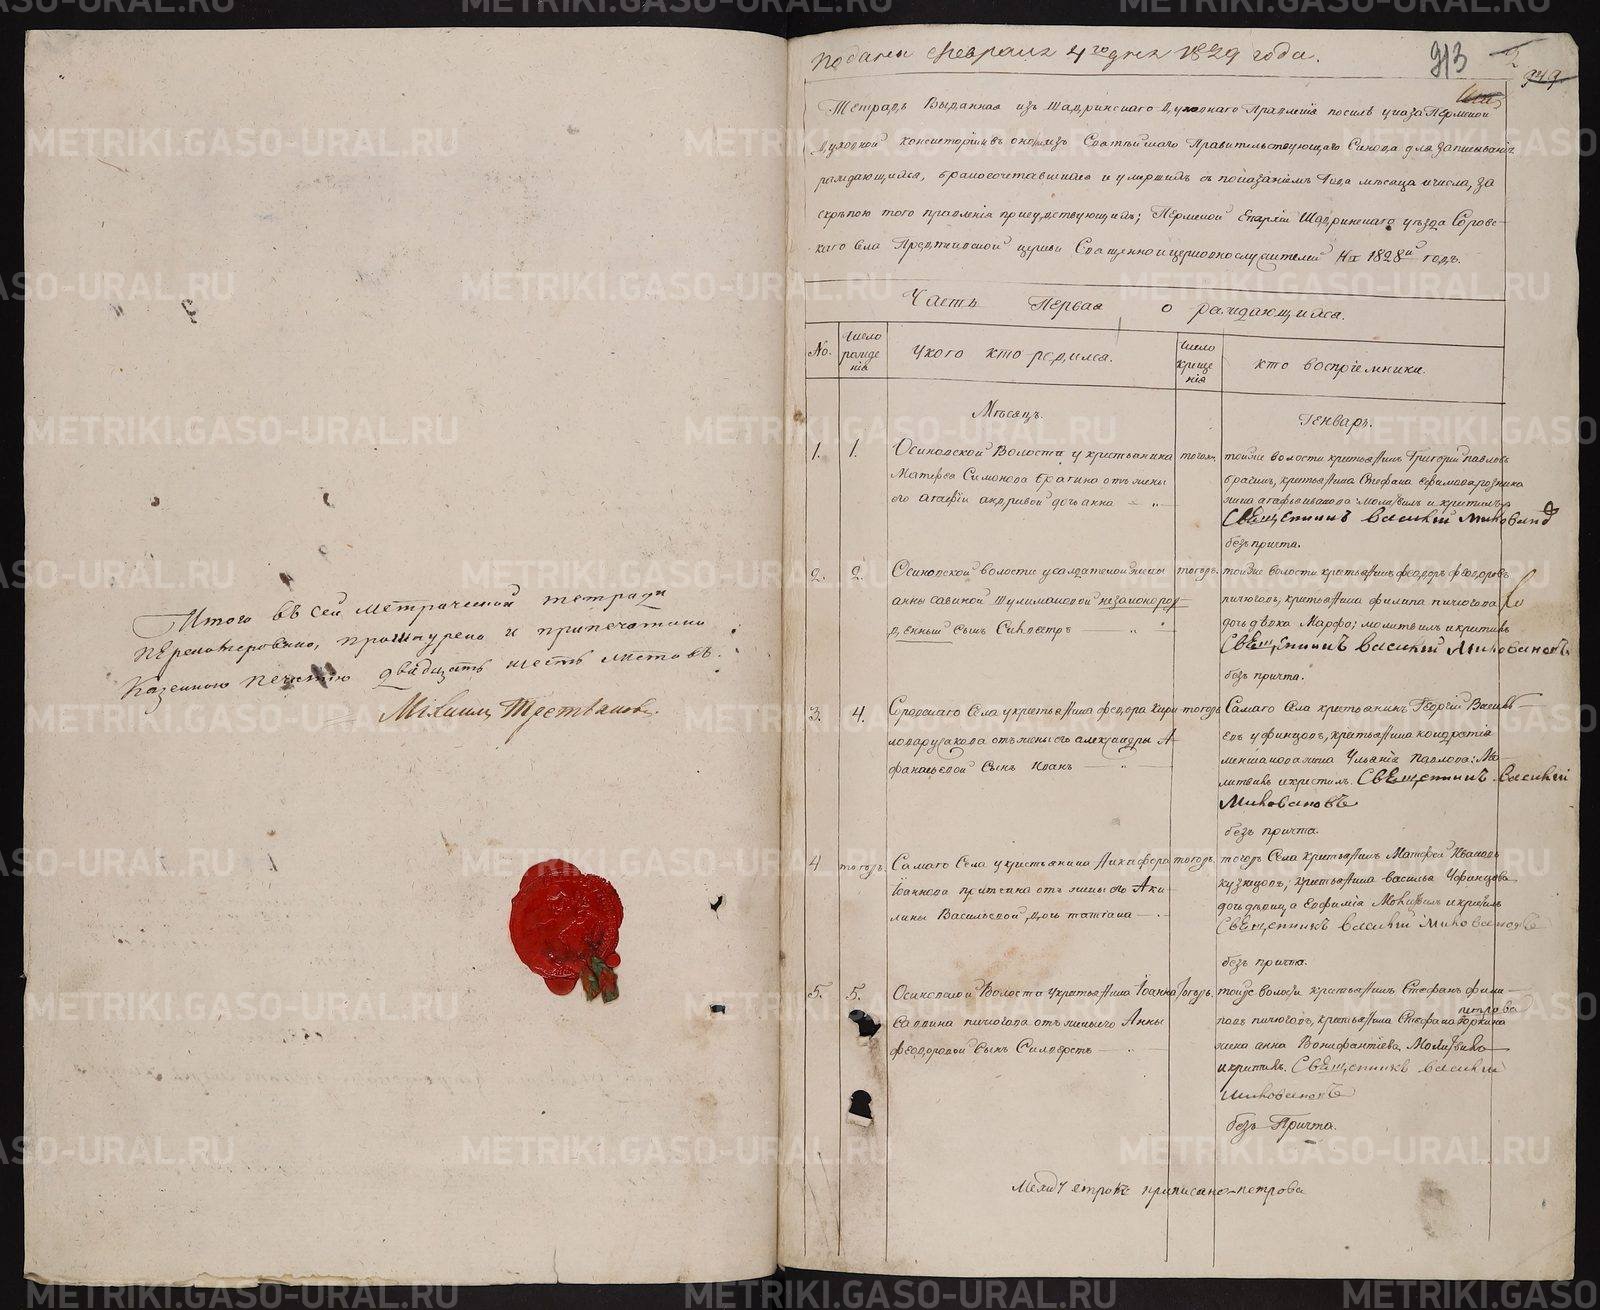 Итого въ сей метрической тетради
перенумеровано, прошнурено и припечатано
Казенною печатью двадцать шесть листовъ.
Михаилъ
Подана февраля 4го дня 1829 года.
913
Тетрадь выданная изъ Шадринскаго Духовнаго Правленія по силѣ указа Пермской
Духовной консисторіи въ оную изъ Святѣйшаго Правительствующаго Синода для записыванія
раждающихся, бракосочетавшихся и умершихъ съ показаніемъ года мѣсяца и числа, за
скрѣпою того правленія присудствующихъ; Пермской Епархіи Шадринскаго уѣзда Соровс-
каго села Предтечевской церкви Священно и церковнослужителей на 1828й годъ.
Часть Первая о раждающихся.
No.
Число рожде нія
У кого кто родился.
Число креще нія
кто воспріемники.
Мѣсяцъ. Генварь.
1. 1. Осиновской Волости у крестьянина
Матвея Симонова Брагина отъ жены
его Агафіи дочь Анна
тогож. тойже волости крестьянинъ Григорій Павловъ
брагинъ, крестьянина Стефана Ефимова
жена Агафья молитвилъ и крестилъ
Священникъ Василій
безъ причта.
2. 2. Осиновской волости у салдатской жены
анны савиной незаконорож
денный сынъ Силвестръ
тогожъ. тойже волости крестьянинъ феодоръ феодоровъ
пичюговъ, крестьянина филипа пичюгова
дочь дѣвка Марфа; молитвилъ и крестилъ
Священникъ Василій
безъ причта.
3. 4. Соровскаго Села у крестьянина феодора Кири
лова русакова отъ жены его александры А-
фанасьевой сынъ Иванъ
тогожъ Самаго Села крестьянинъ Георгій Василь-
евъ уфинцовъ, крестьянина кондратія
меншикова жена Ульянія Павлова: Мо-
литвилъ и крестилъ Священникъ Василій
безъ причта.
4 тогожъ. Самаго Села у крестьянина Никифора
Іоаннова причина отъ жены его Аки-
лины Васильевой, дочь татіана
тогожъ. тогожъ Села крестьянинъ Матфей Ивановъ
кузнцовъ, крестьянина василья Уфинцова
дочь дѣвица Евфимія Молитвилъ и крестилъ
Священникъ Василій
безъ причта.
5. 5. Осиновской Волости у крестьянина Іоанна
Саввина пичюгова отъ жены его Анны
феодоровой сынъ Силверстъ
тогожъ. тойже волости крестьянинъ Стефанъ фили-
повъ пичюговъ, крестьянина Стефана
петрова
жена анна Вонифантіева. Молитвилъ
и крестилъ. Священникъ Василій
безъ Причта.
Между строкъ приписано петрова